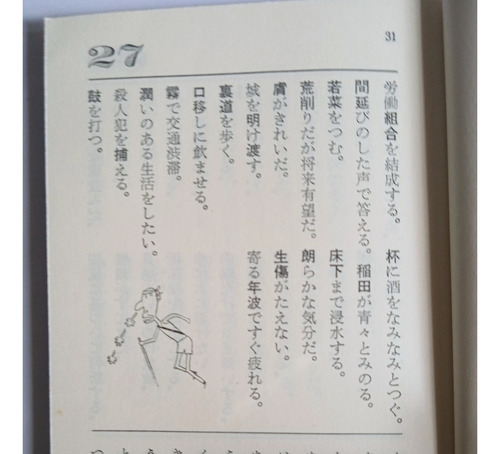 31
27
労働組合を結成する。 杯に酒をなみなみとつぐ。
間延びのした声で答える。 稲田が青々とみのる。
若菜をつむ。 床下まで浸水する。
荒削りだが将来有望だ。 朗らかな気分だ。
膚がきれいだ。 生傷がたえない。
城を明け渡す。 寄る年波ですぐ疲れる。
裏道を歩く。
口移しに飲ませる。
霧で交通渋滞。
潤いのある生活をしたい。
殺人犯を捕える。
鼓を打つ。